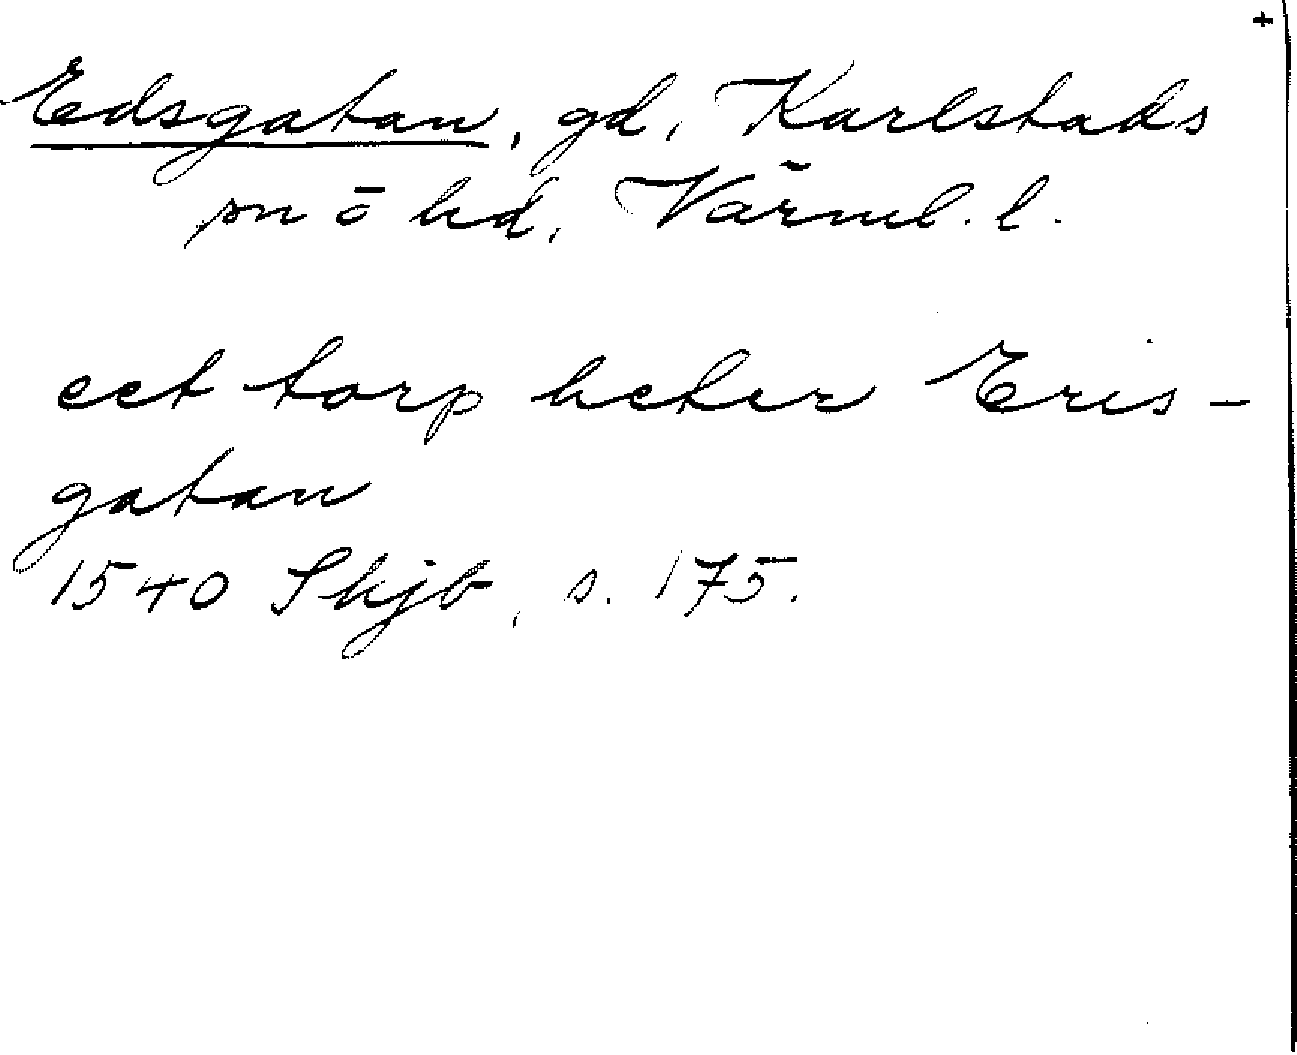 +
Edsgatan, gd, Karlstads
sn ö hd, Värml. l.
eet torp heter Eris-
gatan
1540 Skjb, s. 175.